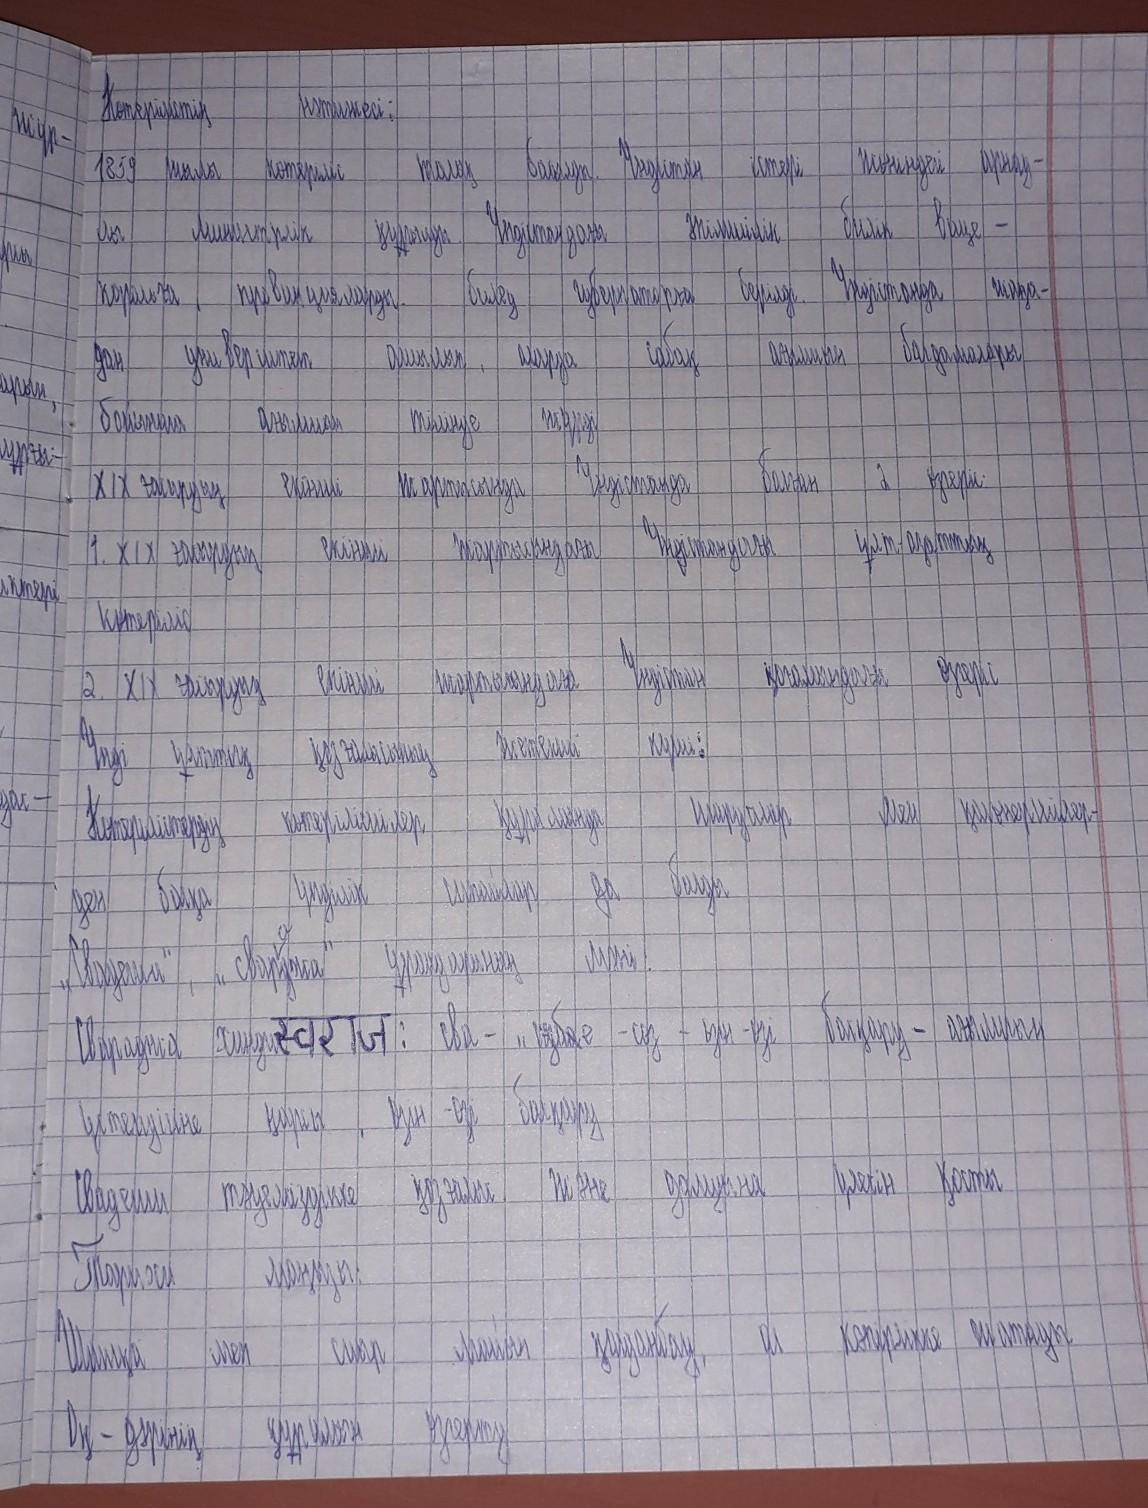 Көтерілістің нәтижесі:
1859 жылы көтеріліс толық басылды. Үндістан істері жөніндегі арнау-
лы министрлік құрылды. Үндістандағы жергілікті билік вице-
корольға, провинцияларды билеу губернаторға берілді. Үндістанда жаңа-
дан университет ашылып, онда сабақ ағылшын бағдарламалары
бойынша ағылшын тілінде жүрді
XIX ғасырдың екінші жартысында Үндістанда болған 2 өзгеріс:
1. XIX ғасырдың екінші жартысындағы Үндістандағы ұлт-азаттық
көтеріліс
2. XIX ғасырдың екінші жартысындағы Үндістан қоғамындағы өзгеріс
Үнді ұлттық қозғалысының жетекші күші:
Көтерілістердің көтерілісшілер құрамында шаруалар мен қолөнершілер-
ден басқа үнділік сипайлар да болды
„Свадеши", „свараджа" ұрандарының мәні:
Свараджа хинди स्वराज : сва- „ -өз - өзін-өзі басқару - ағылшын
үстемдігіне қарсы, өзін-өзі басқару
Свадеши тәуелсіздікке қозғалыс және дамуына үлесін қосты
Тарихи маңызы:
Шошқа мен сиыр майын қолданбау, ал көпірлікке жататын
Оқ-дәрінің құрамын өзгерту